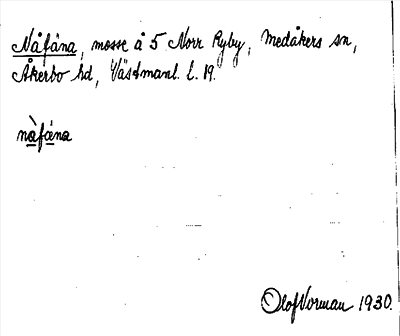 Nåfåna, mosse å 5 Norr Ryby, Medåkers sn,
Åkerbo hd, Västmanl. l. 19.
nàfána
Olof Vorman 1930.